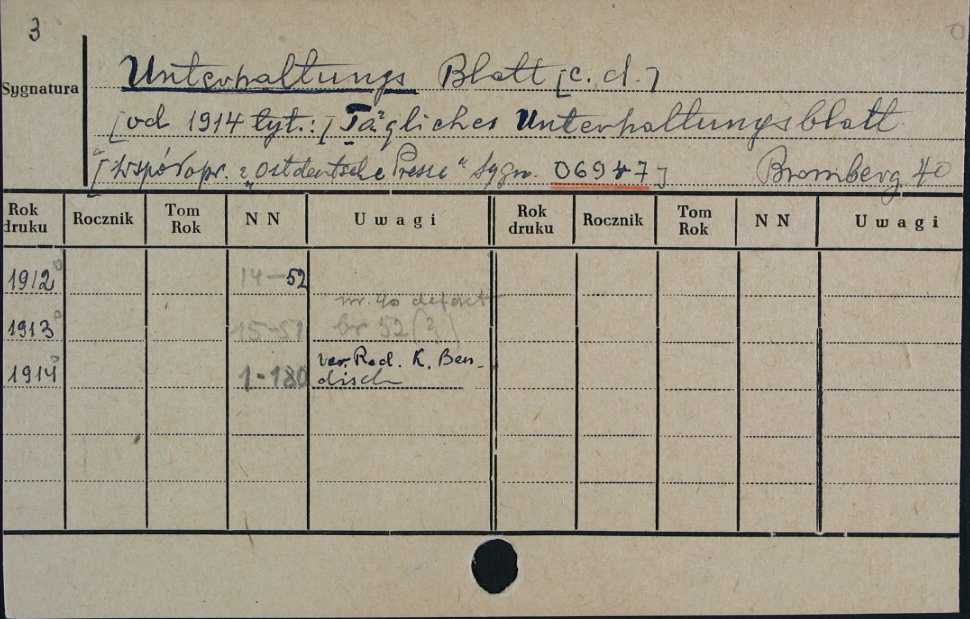 3
Sygnatura
Unterhaltungs Blatt [c. d.]
[od 1914 tyt.:] Tägliches Unterhaltungsblatt
[Współopr. z „Ostdeutsche Presse" Sygn. 06947] Bromberg 40
Rok druku Rocznik Tom Rok N N Uwagi Rok druku Rocznik Tom Rok N N Uwagi
1912 14-52
nr. 40 defekt
1913 15-51 br 52 (?)
1914 1-180 ver. Red. K. Ben-
disch